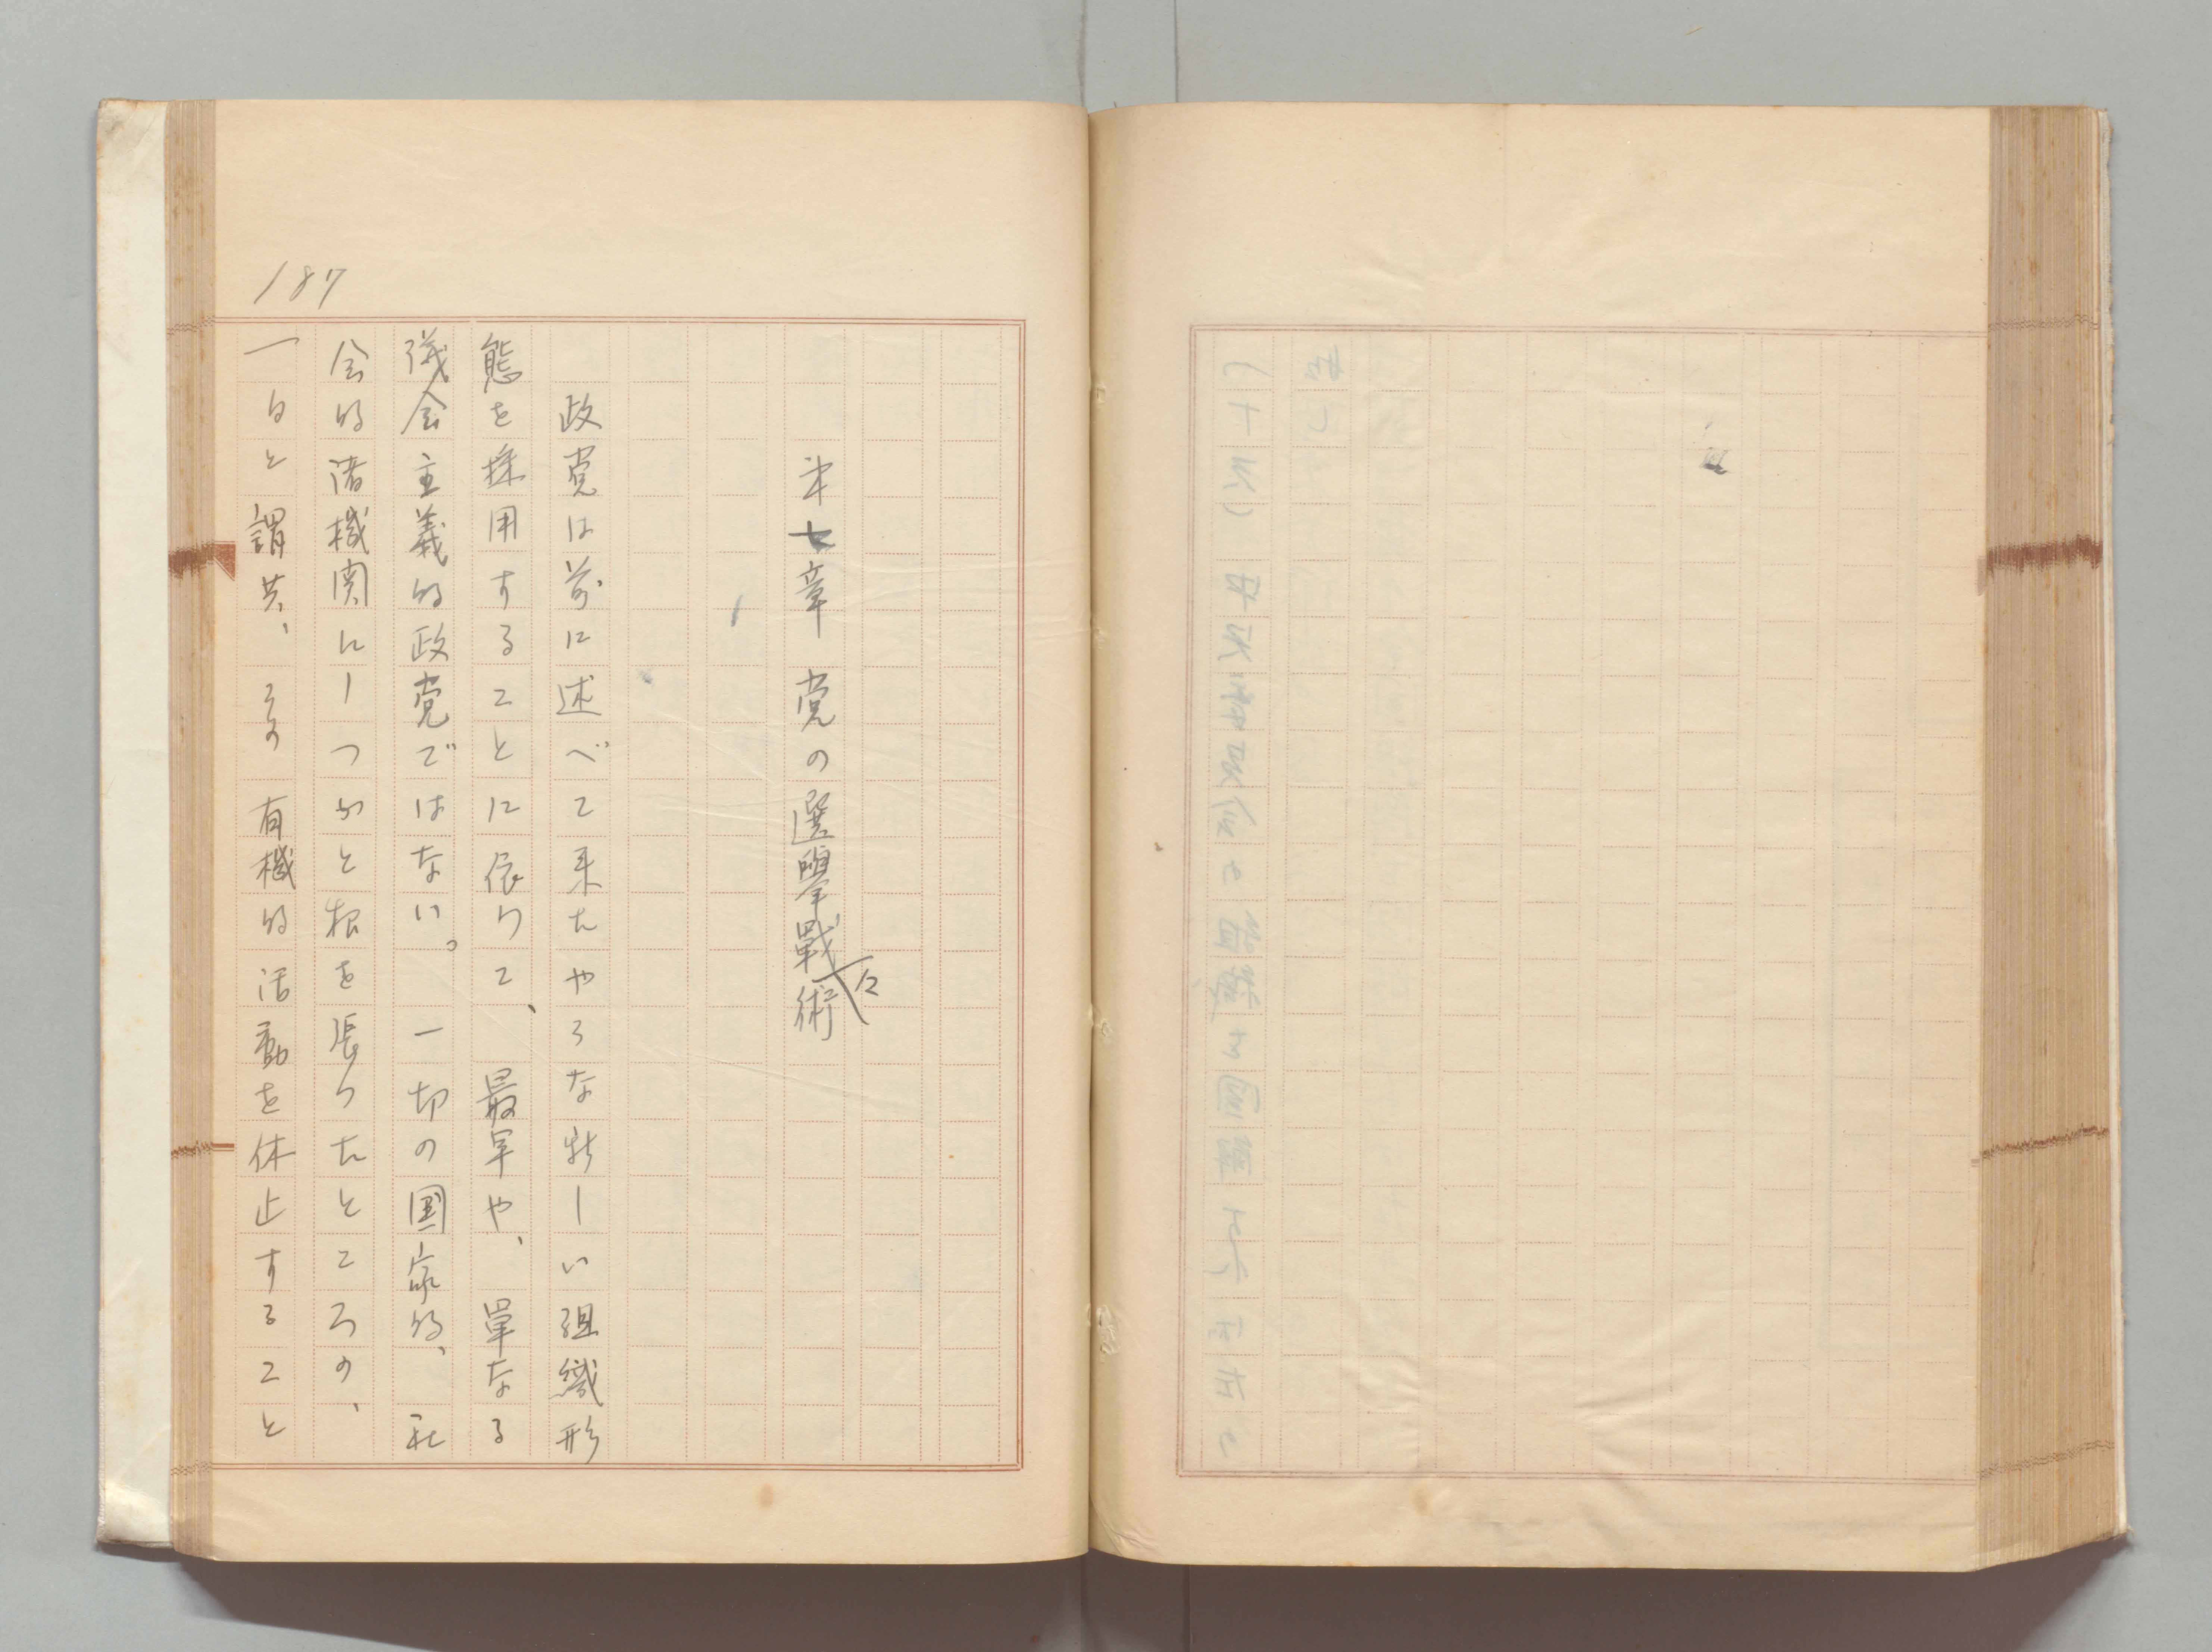 187
第七章　党の選擧戰々術
政党は前に述べて来たやうな新しい組織形
態を採用することに依つて、最早や、單なる
議会主義的政党ではない。一切の国家的、社
会的諸機関にしつかと根を張つたところの、
一日と謂共、その有機的活動を休止すること